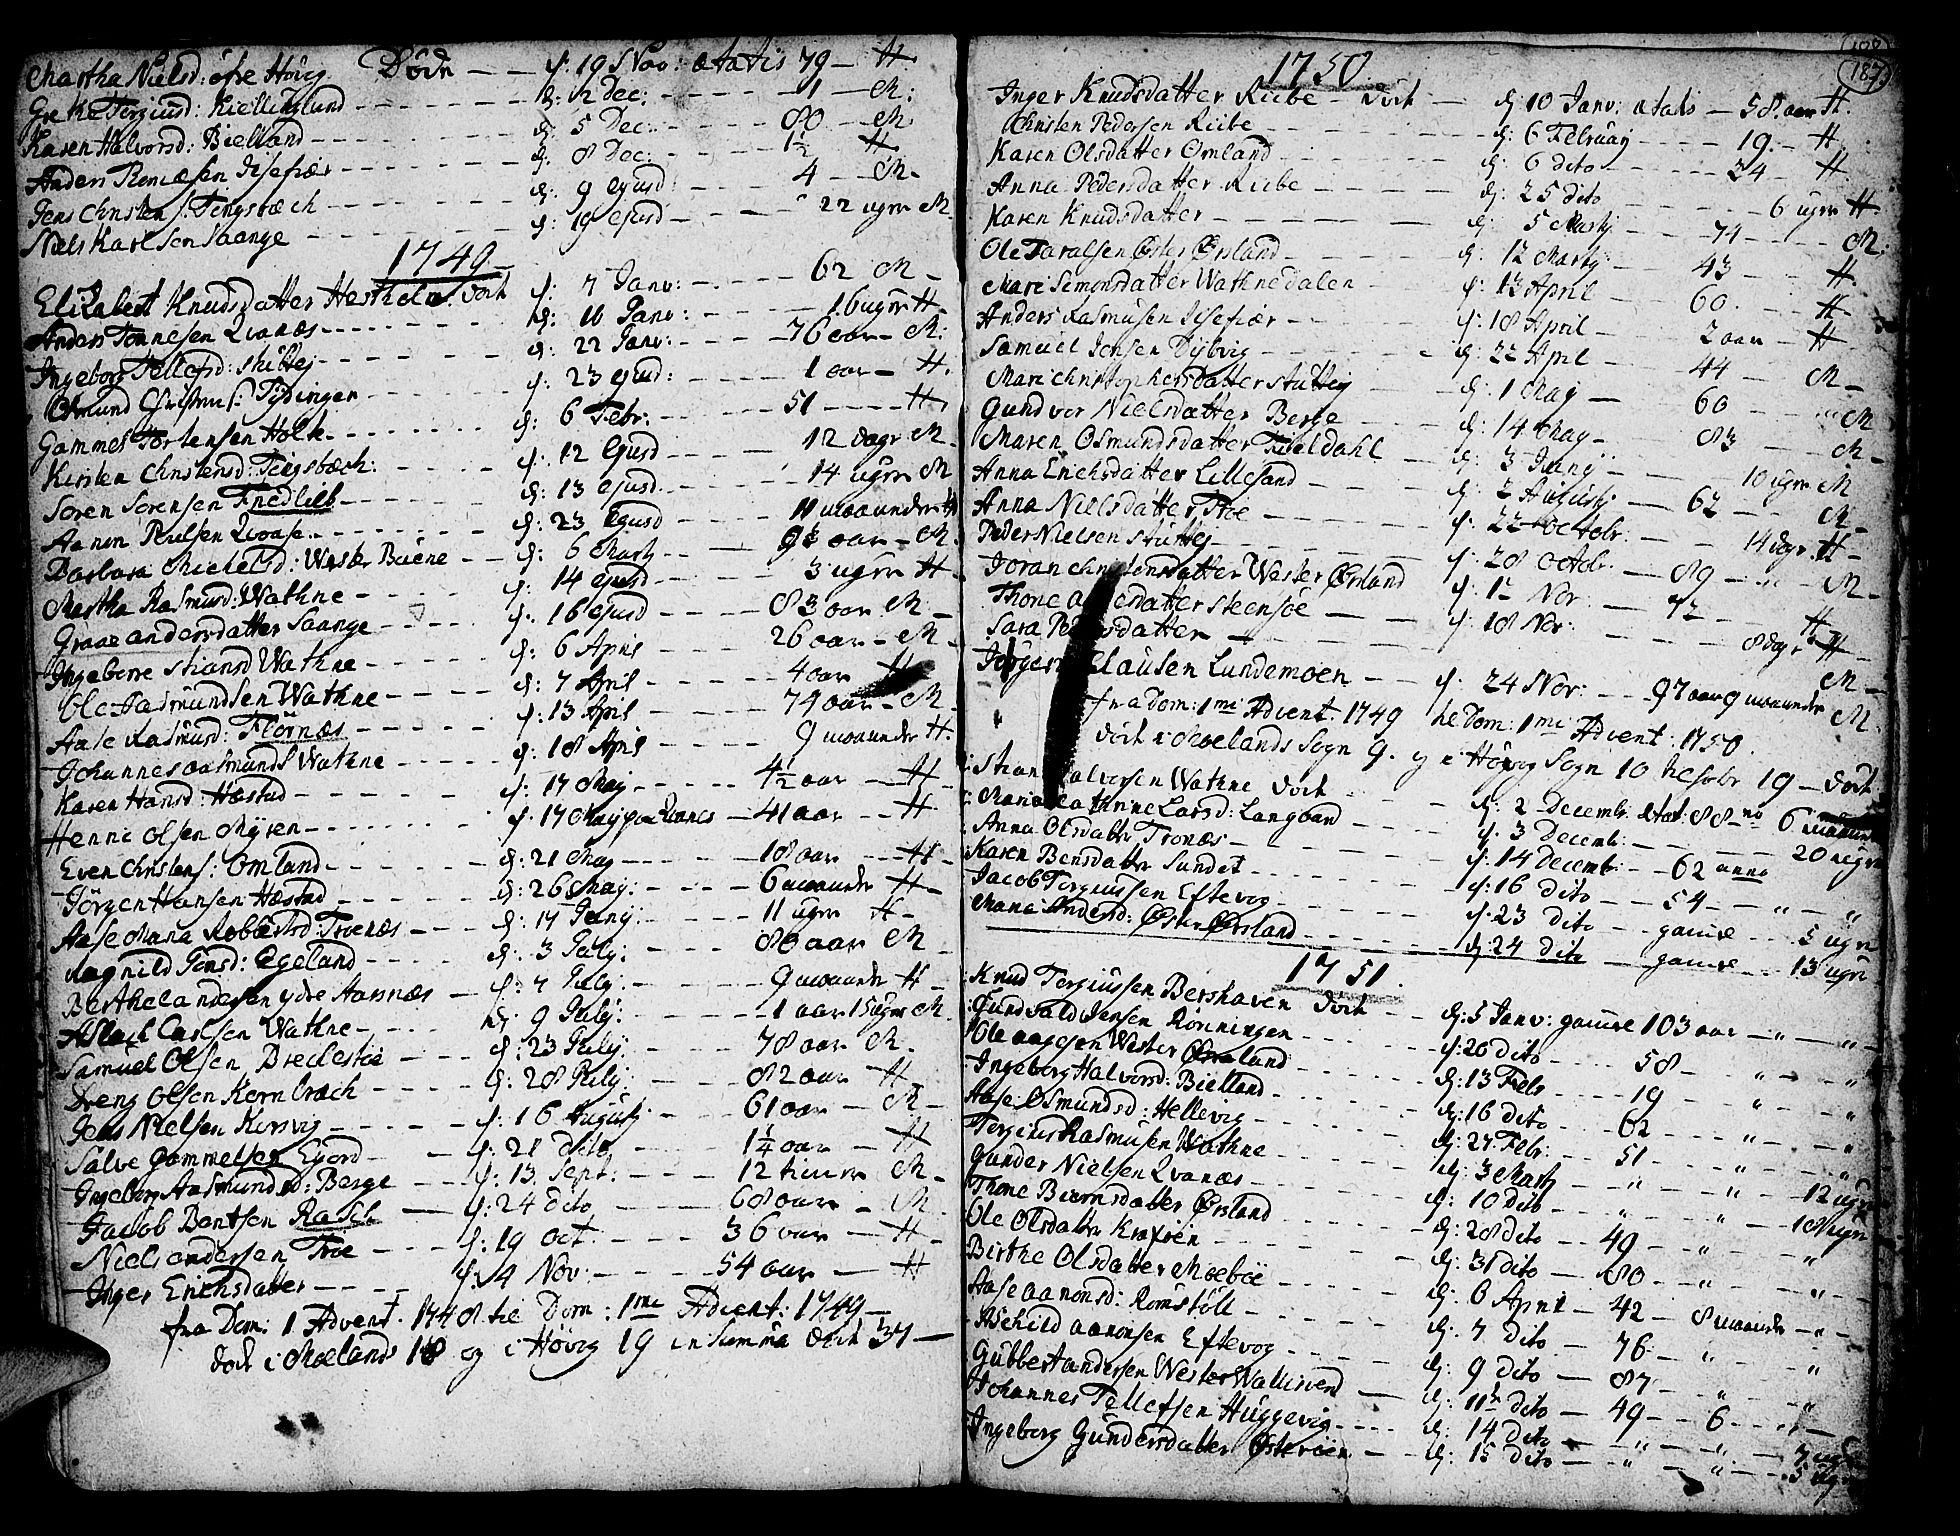 Martha Nielsd: øfre Høvig Døde — — d: 19 Nov: ætatis 79 — H
Grethe Tergiusd: Kiellinglund d: 2 Dec: 1 — M:
Karen Halvorsd: Bielland d: 5 Dec: 80 — M
Anders Tomæsen Isefiær d: 8 Dec: 1½ H
Jens Christens: Tingsbæch d: 9 Ejusd: 4 — M —
Niels Karlsen Saange d: 19 ejusd — 22 uger M
1749
Elizabett Knudsdatter Hæstehela: Dørt d: 7 Janv: 62 M —
Anders Tønnesen Qvanæs d: 10 Janv: 16 uger H.
Ingeborg Tellefsd: Skittej d: 22 Janv: — 76 aar — M:
Osmund Christens: Tydingen d: 23 ejusd: — 1 aar — H.
Gammel Torstensen Holte d: 6 Febr: 51 — H
Kirsten Christensd: Tingsbæch: d: 12 Ejusd 12 dage M —
Søren Sørensen Fredlieb d: 13 ejusd 14 uger M
Aanon Poulsen Qvaase d: 23 Ejusd 11 maaneder H
Barbara Michelsd: Westær Buene d: 6 Martj — 9½ aar — M
Martha Rasmusd: Wathne d: 14 ejusd 3 uger H
Graae andersdatter Saange d: 16 ejusd — 83 aar — M —
Ingeborre Stiansd Wathne d: 6 April 26 aar — M —
Ole Aasmundsen Wathne d: 7 April 4 aar H
Aase Rasmusd: Flørnæs d: 13 April 74 aar — M —
Johannes aasmunds Wathne d: 18 April 9 maaneder H.
Karen Hansd: Hæstad d: 17 Maj 4½ aar — H
Henric Olsen Myren d: 17 Maj paa Qvanes — 41 aar — H
Even Christens: Omland d: 21 Maj 18 aar — H
Jørgen Hansen Hæstad d: 26 Maj: 6 maaneder H —
Aase Maria Robbertsd: Troenæs d: 17 Junij: 11 uger H —
Ragnild Jensd: Egeland d: 3 July: 80 aar M
Berthel andersen ydre Aarsnæs d: 7 July: 9 maaneder H —
Aslach Carlsen Wathne d: 9 July: 1 aar 15 uger M
Samuel Olsen Bredestøe d: 23 July: 78 aar M
Dreng Olsen Kornbræch d: 28 July: 82 aar H
Jens Nielsen Korsvig d: 16 Augustj 61 aar — M —
Salve Gammelsen Egerd d: 21 dito 1¼ aar — H
Ingeborg Aasmundsd: Berge d: 13 Sept: — 12 timer M —
Jacob Bentsen Rasch d: 24 dito 68 aar — M
Niels andersen Troe d: 19 oct: 36 aar — H —
Inger Erichsdatter d: 4 Nov: 54 aar — H
fra Dom: 1 Advent: 1748 til Dom: 1me Advent: 1749 —
Dørt i Moelands 18 og i Høvig 19 in Summa Dørt 37 —
187
1750
Inger Knudsdatter Riibe — Dørt — d: 10 Janv: ætatis — 58 aar H.
Christen Pedersen Riibe d: 6 Februarj 19 — H
Karen Olsdatter Omland d: 6 dito 24 — H
Anna Pedersdatter Riibe d: 25 dito 6 uger H
Karen Knudsdatter d: 5 Martj 74 — M:
Ole Taralsen Øster Ørsland d: 12 Martj 43 H
Mari Simonsdatter Wathnedalen d: 13 April 60 H
Anders Rasmusen Isefiær d: 18 April 2 aar H
Samuel Jensen Dybvig d: 22 April 44 M —
Mari Christophersdatter Stuttej d: 1 Maj 60 M
Gundvor Nielsdatter Berge d: 14 Maj 83 M —
Maren Osmundsdatter Tveldahl d: 3 Junij 10 uger M
Anna Erichsdatter Lillesand d: 2 Augustj 62 M —
Anna Nielsdatter Troe d: 22 Octobr: 14 dage H —
Peder Nielsen Stuttej d: 28 octobr: 89 M
Joran Christensdatter Wester Ørsland d: 12 Nor: 72 H
Thone datter Steensøe d: 18 Nor: 8 dage H
Sara Pedersdatter
Jørgen Clausen Lundemoen d: 24 Nor: 97 aar 9 maaneder M
fra Dom: 1mi Advent: 1749 til Dom: 1me Advent: 1750
Dørt i Moelands Sogn 9. og i Høvig Sogn 10 tilsamlr 19 — Dørt
Stian Halvorsen Wathne Dørt d: 2 Decembr: ætat: 88 — no 6 maaneder
Maria Cathrine Larsd: Langband d: 3 Decembr: 20 uger
Anna Olsdattr Tronæs d: 14 Decembr: — 62 anno
Karen Bensdattr Sundet d: 16 dito — 54 — " — "
Jacob Tergiussen Eftevog d: 23 dito — gamle — 5 uger
Maria Andersd: Øster Ørsland d: 24 dito — gamle — 13 uger
1751
Knud Tergiussen Bershaven Dørt d: 5 Janv: gamle 103 aar — " — "
Gundvald Jensen Rønningen d: 20 dito 58 — " — "
Ole aagesen Wester Ørsland d: 13 Febr 19 — " — "
Ingeborg Halvorsd: Bielland d: 16 dito 62 — " — "
Aase Osmundsd: Hellevig d: 27 Febr: 51 — " — "
Tergius Rasmusen Wathne d: 3 Martj — " — " — 12 uger
Gunder Nielsen Qvanæs d: 10 dito — " — " — 10 uger
Thone Biørnsdatter Ørsland d: 28 dito 49 — " — "
Ole Olsdattr Krøføen d: 31 dito 80 — " — "
Birthe Olsdatter Moebøe d: 6 April — 42 — 8 maaneder — " —
Aase aanonsd: Romstøll d: 7 dito — 76 — " — "
Aschild aanonsen Eftevog d: 9 dito — 87 — " — "
Gubbert andersen Wester Wallisverd d: 11te dito — 49 — 6 — " —
Johannes Tellefsen Huggevig d: 14 dito — " — " — 7 uger
Ingeborg Gundersdatter Østerøen d: 15 dito — " — " — 5 uger